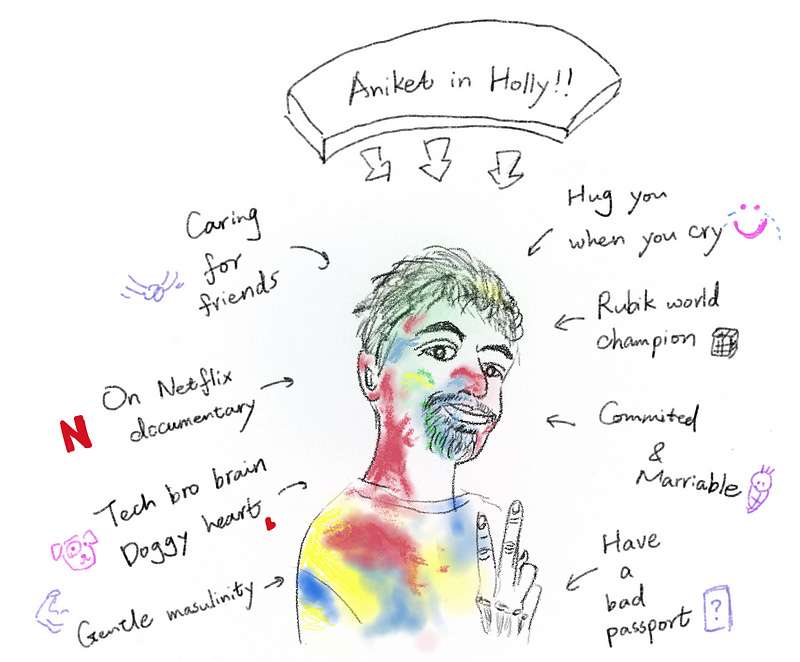 Aniket in Holly!!
Caring
for
friends
On Netflix
documentary
N
Tech bro brain
Doggy heart
Gentle masulinity
Hug you
when you cry
Rubik world
champion
Commited
&
Marriable
Have
a
bad
passport
?